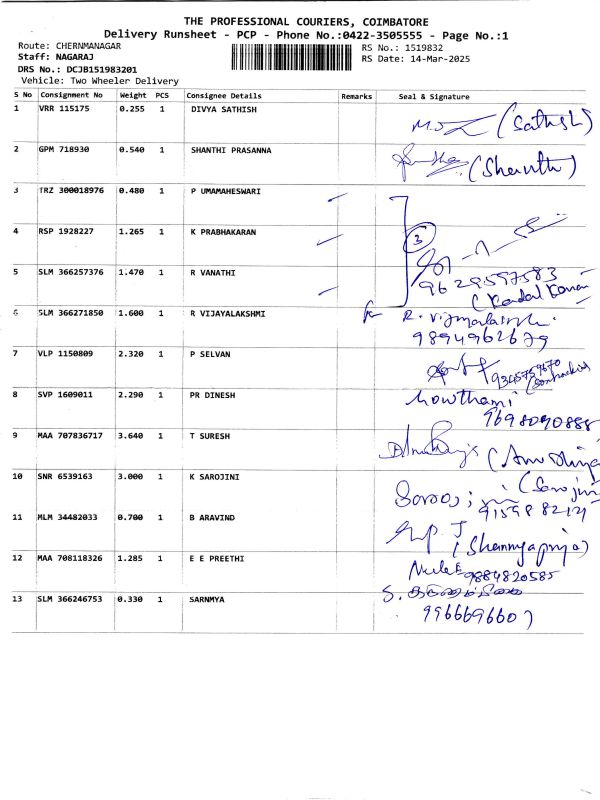 THE PROFESSIONAL COURIERS, COIMBATORE
Delivery Runsheet - PCP - Phone No.:0422-3505555 - Page No.:1
Route: CHERNMANAGAR
RS No.: 1519832
Staff: NAGARAJ
RS Date: 14-Mar-2025
DRS No.: DCJB151983201
Vehicle: Two Wheeler Delivery
S No Consignment No Weight PCS Consignee Details Remarks Seal & Signature
1 VRR 115175 0.255 1 DIVYA SATHISH
(Sathish)
2 GPM 718930 0.540 1 SHANTHI PRASANNA
(Shanthi)
3 TRZ 300018976 0.480 1 P UMAMAHESWARI
4 RSP 1928227 1.265 1 K PRABHAKARAN
3
5 SLM 366257376 1.470 1 R VANATHI
9629597583
6 SLM 366271850 1.600 1 R VIJAYALAKSHMI
9894962679
7 VLP 1150809 2.320 1 P SELVAN
8 SVP 1609011 2.290 1 PR DINESH
Gowthami
9698090888
9 MAA 707836717 3.640 1 T SURESH
10 SNR 6539163 3.000 1 K SAROJINI
(Sarojini
11 MLM 34482033 0.700 1 B ARAVIND
(Shanmyapriya)
12 MAA 708118326 1.285 1 E E PREETHI
9884820585
13 SLM 366246753 0.330 1 SARNMYA
9966696607